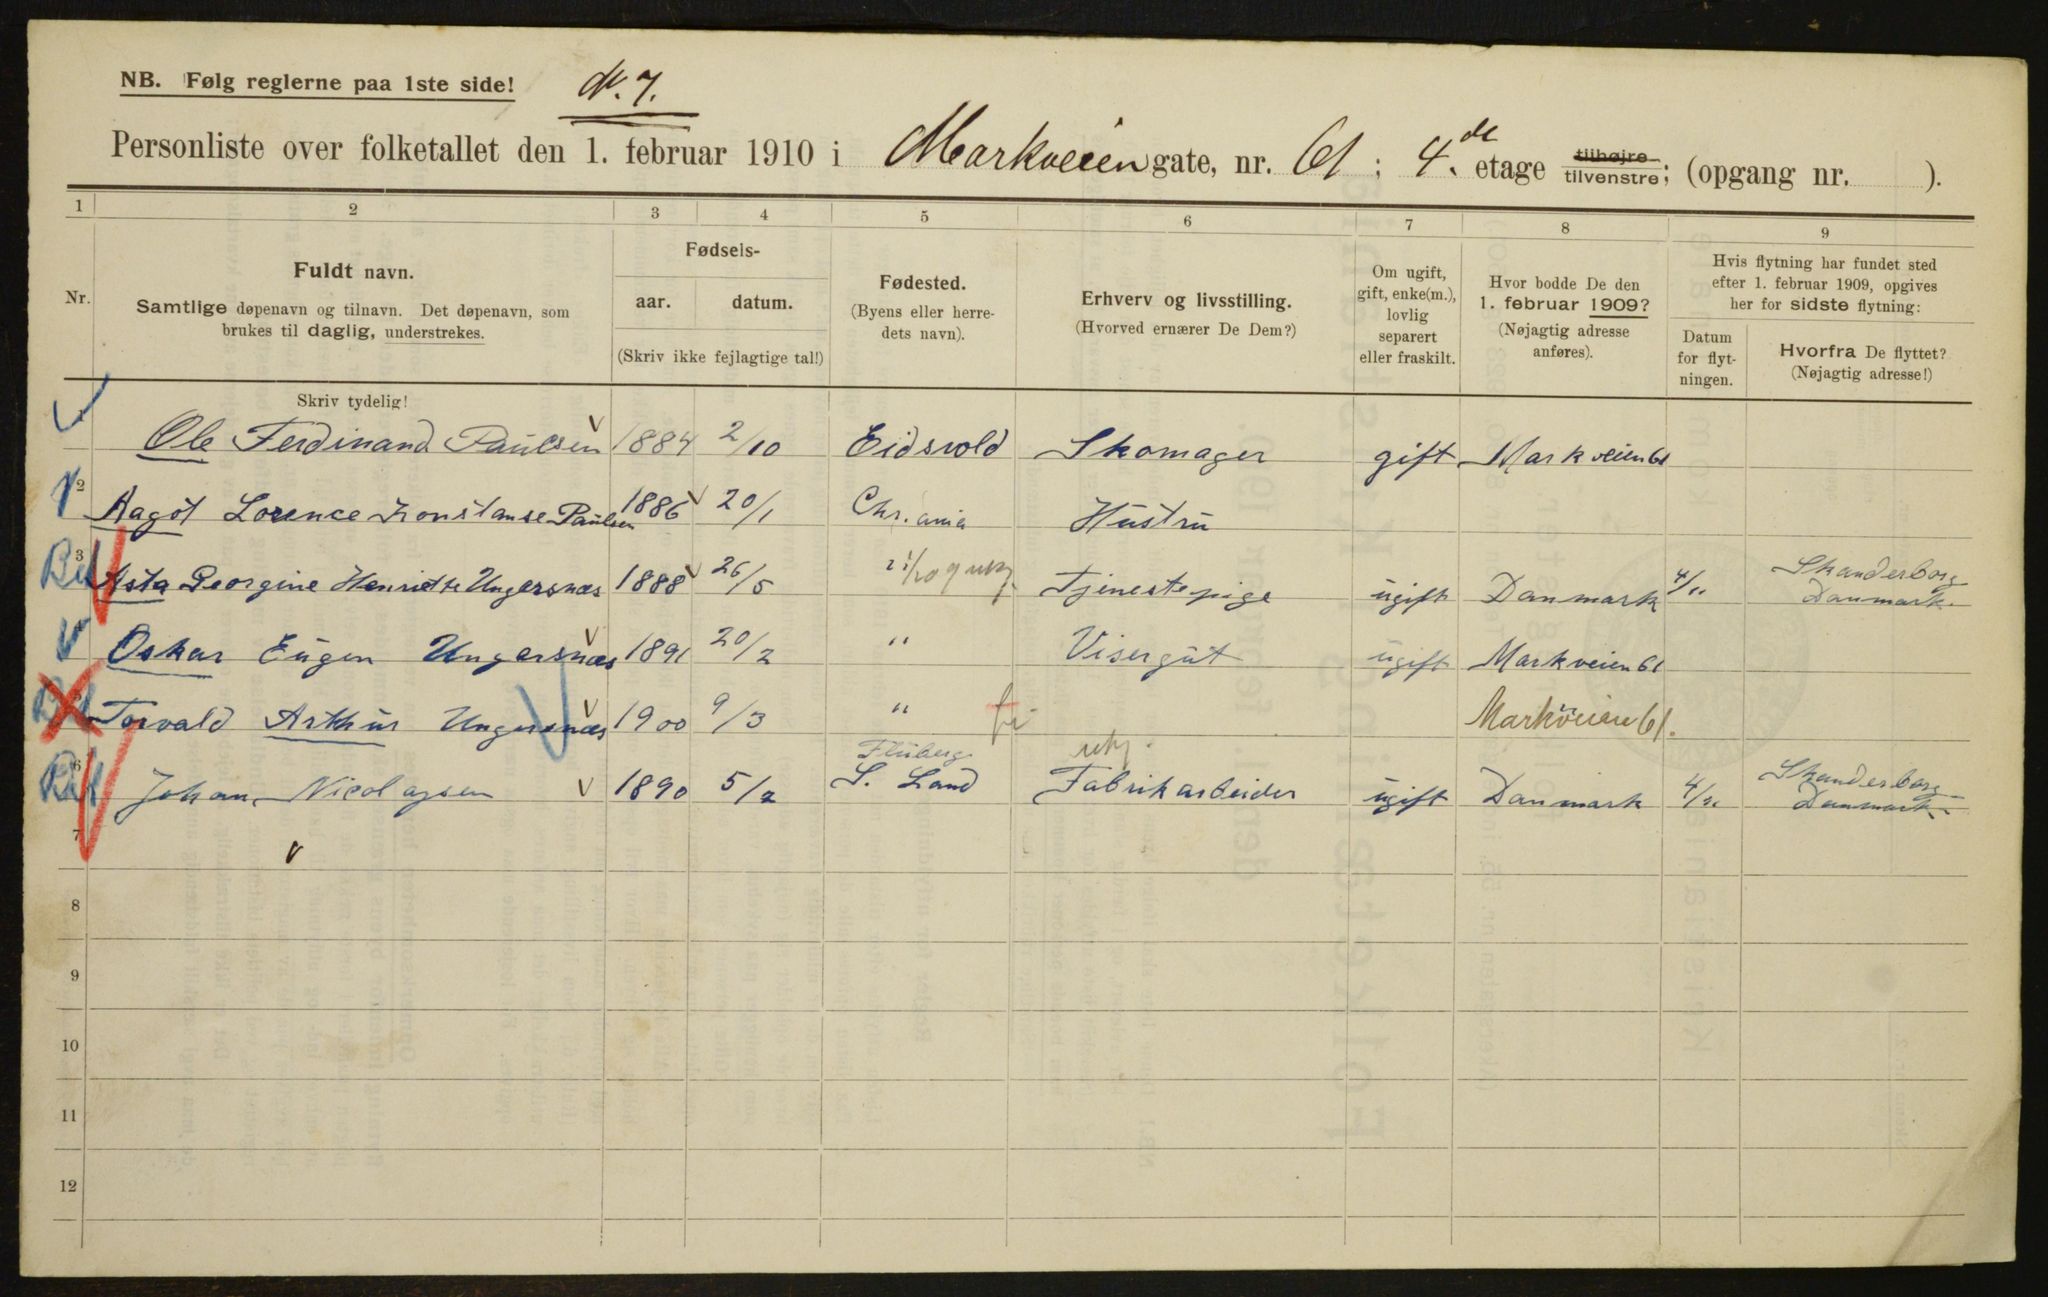 NB. Følg reglerne paa 1ste side!
Nr. 7.
Personliste over folketallet den 1. februar 1910 i Markveien gate, nr. 61 ; 4.de etage tilhøjre tilvenstre; (opgang nr. ).
1 2 3 4 5 6 7 8 9
Nr.
Fuldt navn.
Samtlige døpenavn og tilnavn. Det døpenavn, som
brukes til daglig, understrekes.
Fødsels-
aar. datum.
(Skriv ikke fejlagtige tal!)
Fødested.
(Byens eller herre-
dets navn).
Erhverv og livsstilling.
(Hvorved ernærer De Dem?)
Om ugift,
gift, enke(m.),
lovlig
separert
eller fraskilt.
Hvor bodde De den
1. februar 1909?
(Nøjagtig adresse
anføres).
Hvis flytning har fundet sted
efter 1. februar 1909, opgives
her for sidste flytning:
Datum
for flyt-
ningen.
Hvorfra De flyttet?
(Nøjagtig adresse!)
Skriv tydelig!
Ole Ferdinand Paulsen 1884 2/10 Eidsvold Skomager gift Markveien 61
2 Aagot Lorence Konstanse Paulsen 1886 20/1 Chr.ania Hustru
3 Asta Georgine Henriette Ungersnæs 1888 26/5 Tjenestepige ugift Danmark 4/11 Skanderborg Danmark.
Oskar Eugen Ungersnæs 1891 20/2 " Visergut ugift Markveien 61
5 Torvald Arthur Ungersnæs 1900 9/3 " Markveien 61.
6 Johan Nicolaysen 1890 5/2 Fluberg S. Land Fabrikarbeider ugift Danmark 4/11 Skanderborg Danmark.
7
8
9
10
11
12